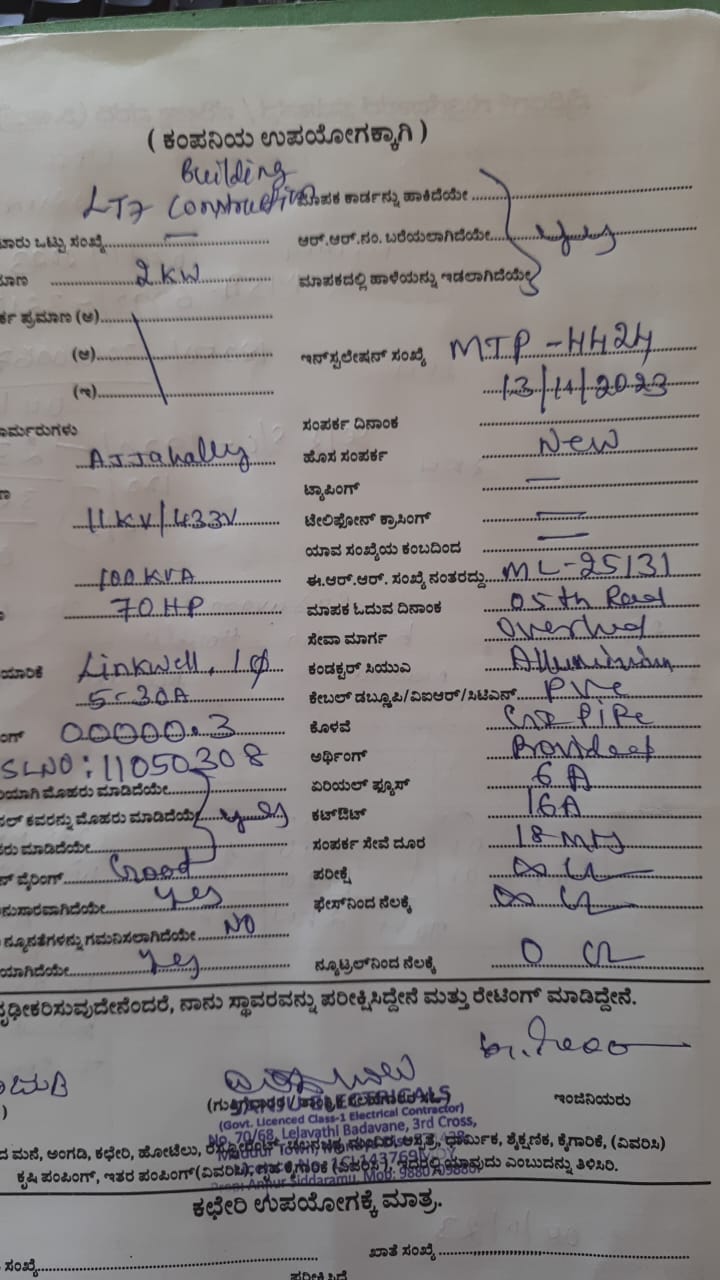 ( ಕಂಪನಿಯ ಉಪಯೋಗಕ್ಕಾಗಿ )
Building
LT7 Construction ಮಾಪಕ ಕಾರ್ಡನ್ನು ಹಾಕಿದೆಯೇ
ಒಟ್ಟು ಸಂಖ್ಯೆ — ಆರ್.ಆರ್.ನಂ. ಬರೆಯಲಾಗಿದೆಯೇ yes
2KW ಮಾಪಕದಲ್ಲಿ ಹಾಳೆಯನ್ನು ಇಡಲಾಗಿದೆಯೇ
ಪ್ರಮಾಣ (ಅ)
(ಆ) ಇನ್‌ಸ್ಟಲೇಷನ್ ಸಂಖ್ಯೆ MTP-4424
(ಇ) 13/11/2023
ಸಂಪರ್ಕ ದಿನಾಂಕ
AJJahally ಹೊಸ ಸಂಪರ್ಕ New
ಟ್ಯಾಪಿಂಗ್ —
11KV/433V ಟೆಲಿಫೋನ್ ಕ್ರಾಸಿಂಗ್ —
ಯಾವ ಸಂಖ್ಯೆಯ ಕಂಬದಿಂದ —
100KVA ಈ.ಆರ್.ಆರ್. ಸಂಖ್ಯೆ ನಂತರದ್ದು ML-25131
70HP ಮಾಪಕ ಓದುವ ದಿನಾಂಕ 05th Read
ಸೇವಾ ಮಾರ್ಗ Overhed
Linkwell, 1φ ಕಂಡಕ್ಟರ್ ಸಿಯುಎ
5-30A ಕೇಬಲ್ ಡಬ್ಲ್ಯೂಪಿ/ವಿಐಆರ್/ಸಿಟಿಎಸ್ PVC
00000.3 ಕೊಳವೆ PIPe
SLNO:11050308 ಅರ್ಥಿಂಗ್ Provided
ಮೊಹರು ಮಾಡಿದೆಯೇ ಏರಿಯಲ್ ಫ್ಯೂಸ್ 6A
ಕವರನ್ನು ಮೊಹರು ಮಾಡಿದೆಯೇ yes ಕಟ್‌ಔಟ್ 16A
ಮಾಡಿದೆಯೇ ಸಂಪರ್ಕ ಸೇವೆ ದೂರ 18 Mts
ವೈರಿಂಗ್ Good ಪರೀಕ್ಷೆ ∞ Ω
yes ಫೇಸ್‌ನಿಂದ ನೆಲಕ್ಕೆ ∞ Ω
ನ್ಯೂನತೆಗಳನ್ನು ಗಮನಿಸಲಾಗಿದೆಯೇ NO
yes ನ್ಯೂಟ್ರಲ್‌ನಿಂದ ನೆಲಕ್ಕೆ 0 Ω
ನಾನು ಸ್ಥಾವರವನ್ನು ಪರೀಕ್ಷಿಸಿದ್ದೇನೆ ಮತ್ತು ರೇಟಿಂಗ್ ಮಾಡಿದ್ದೇನೆ.
ಇಂಜಿನಿಯರು
ELECTRICALS
(Govt. Licenced Class-1 Electrical Contractor)
No. 70/68, Lelavathi Badavane, 3rd Cross,
ಮನೆ, ಅಂಗಡಿ, ಕಛೇರಿ, ಹೋಟೆಲು, ಆಸ್ಪತ್ರೆ, ಧಾರ್ಮಿಕ, ಶೈಕ್ಷಣಿಕ, ಕೈಗಾರಿಕೆ, (ವಿವರಿಸಿ)
ಕೃಷಿ ಪಂಪಿಂಗ್, ಇತರ ಪಂಪಿಂಗ್ (ವಿವರಿಸಿ), ಗೃಹ ಕೈಗಾರಿಕೆ (ವಿವರಿಸಿ), ಇದರಲ್ಲಿ ಯಾವುದು ಎಂಬುದನ್ನು ತಿಳಿಸಿರಿ.
ಕಛೇರಿ ಉಪಯೋಗಕ್ಕೆ ಮಾತ್ರ.
ಸಂಖ್ಯೆ ಖಾತೆ ಸಂಖ್ಯೆ